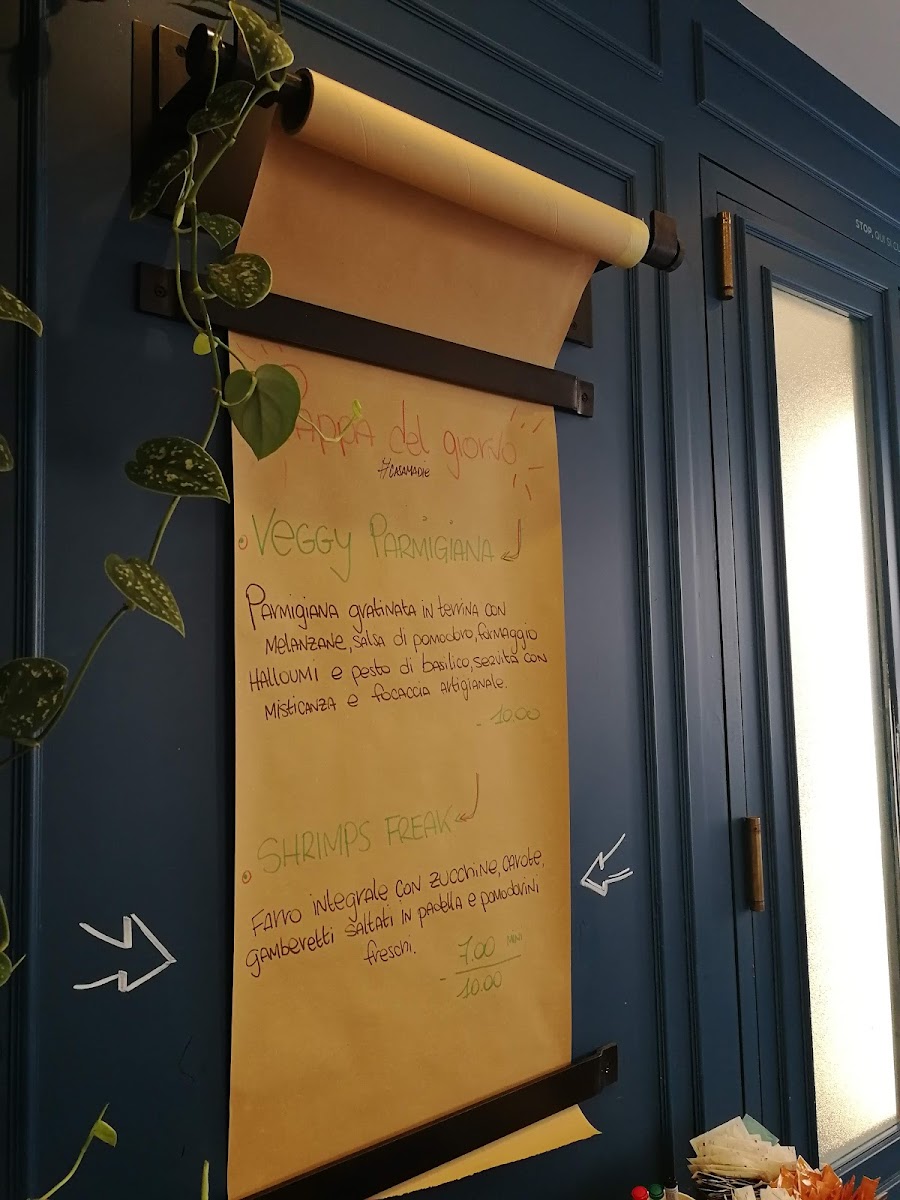 Pappa del giorno
#CASAMADIE
VEGGY PARMIGIANA
PARMIGIANA gratinata in terrina con
MELANZANE, salsa di pomodoro, formaggio
HALLOUMI e pesto di basilico, servita con
MISTICANZA e focaccia artigianale.
- 10.00
SHRIMPS FREAK
FARRO integrale con zucchine, carote,
gamberetti saltati in padella e pomodorini
freschi.
7.00 MINI
- 10.00
STOP, QUI SI